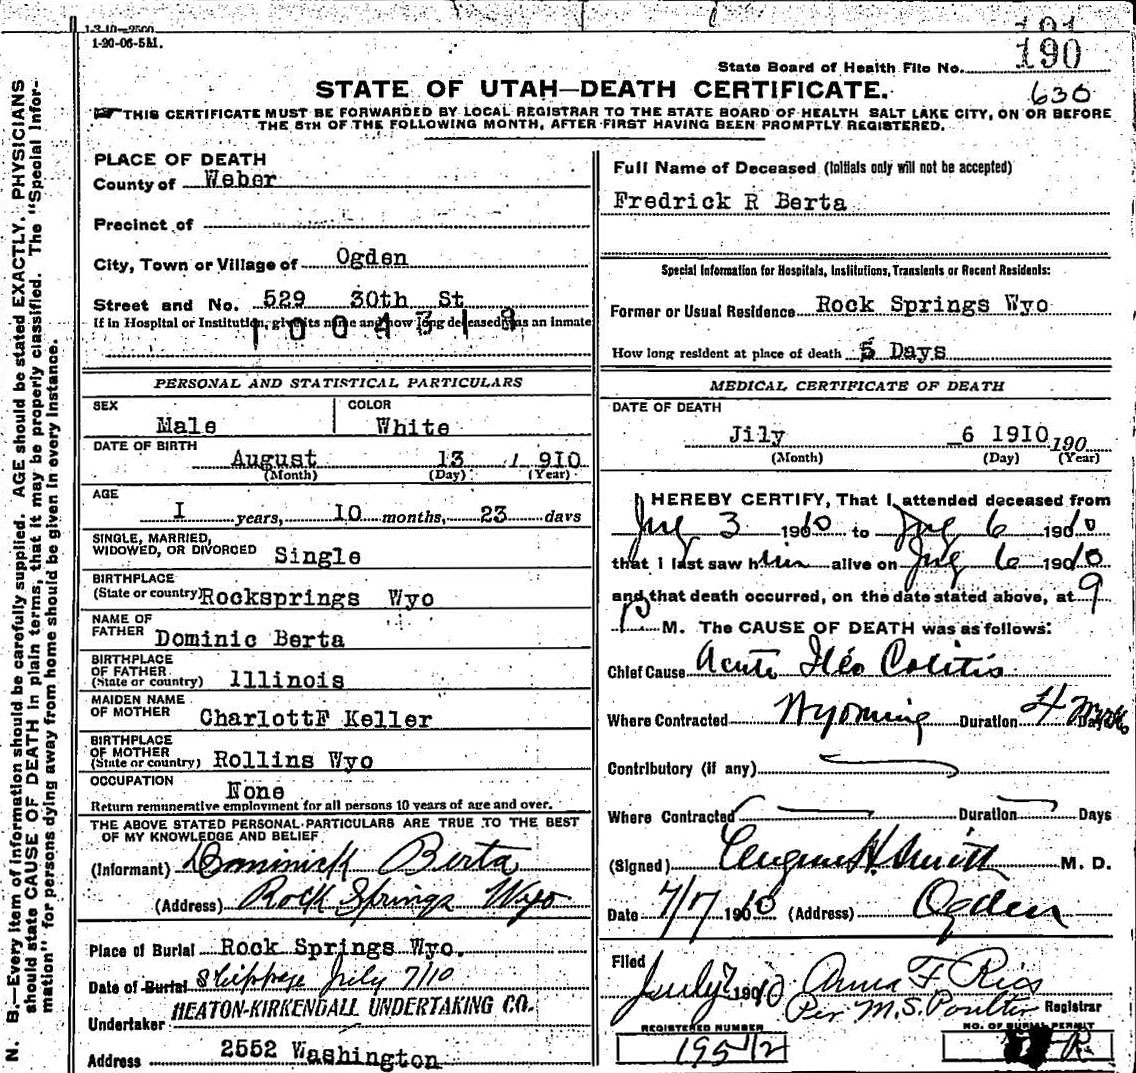 1-3-10-2500
1-20-06-5M.
191
190
State Board of Health File No.
630
STATE OF UTAH—DEATH CERTIFICATE.
THIS CERTIFICATE MUST BE FORWARDED BY LOCAL REGISTRAR TO THE STATE BOARD OF HEALTH SALT LAKE CITY, ON OR BEFORE
THE 5TH OF THE FOLLOWING MONTH, AFTER FIRST HAVING BEEN PROMPTLY REGISTERED.
N. B.—Every item of information should be carefully supplied. AGE should be stated EXACTLY. PHYSICIANS
should state CAUSE OF DEATH in plain terms, that it may be properly classified. The "Special Infor-
mation" for persons dying away from home should be given in every instance.
PLACE OF DEATH
County of Weber
Precinct of
City, Town or Village of Ogden
Street and No. 529 30th St
If in Hospital or Institution, give its name and how long deceased was an inmate
PERSONAL AND STATISTICAL PARTICULARS
SEX Male
COLOR White
DATE OF BIRTH
August 13 1910
(Month) (Day) (Year)
AGE
I years, 10 months, 23 days
SINGLE, MARRIED,
WIDOWED, OR DIVORCED Single
BIRTHPLACE
(State or country) Rocksprings Wyo
NAME OF
FATHER Dominic Berta
BIRTHPLACE
OF FATHER
(State or country) Illinois
MAIDEN NAME
OF MOTHER CharlottF Keller
BIRTHPLACE
OF MOTHER
(State or country) Rollins Wyo
OCCUPATION None
Return remunerative employment for all persons 10 years of age and over.
THE ABOVE STATED PERSONAL PARTICULARS ARE TRUE TO THE BEST
OF MY KNOWLEDGE AND BELIEF
(Informant) Dominick Berta
(Address) Rock Springs Wyo
Place of Burial Rock Springs Wyo.
Date of Burial July 7/10
HEATON-KIRKENDALL UNDERTAKING CO.
Undertaker
Address 2552 Washington
Full Name of Deceased (Initials only will not be accepted)
Fredrick R Berta
Special Information for Hospitals, Institutions, Transients or Recent Residents:
Former or Usual Residence Rock Springs Wyo
How long resident at place of death 5 Days
MEDICAL CERTIFICATE OF DEATH
DATE OF DEATH
Jily 6 1910 190
(Month) (Day) (Year)
I HEREBY CERTIFY, That I attended deceased from
July 3 1910 to July 6 1910
that I last saw him alive on July 6 1910
and that death occurred, on the date stated above, at 9
P M. The CAUSE OF DEATH was as follows:
Chief Cause Acute Ileo Colitis
Where Contracted Wyoming Duration 4 Days
Contributory (if any)
Where Contracted Duration Days
(Signed) Eugene H. Smith M. D.
Date 7/7 1910 (Address) Ogden
Filed
July 7 1910 Anna F Rios
Per M.S. Poulter Registrar
REGISTERED NUMBER
195 1/2
NO. OF BURIAL PERMIT
R.